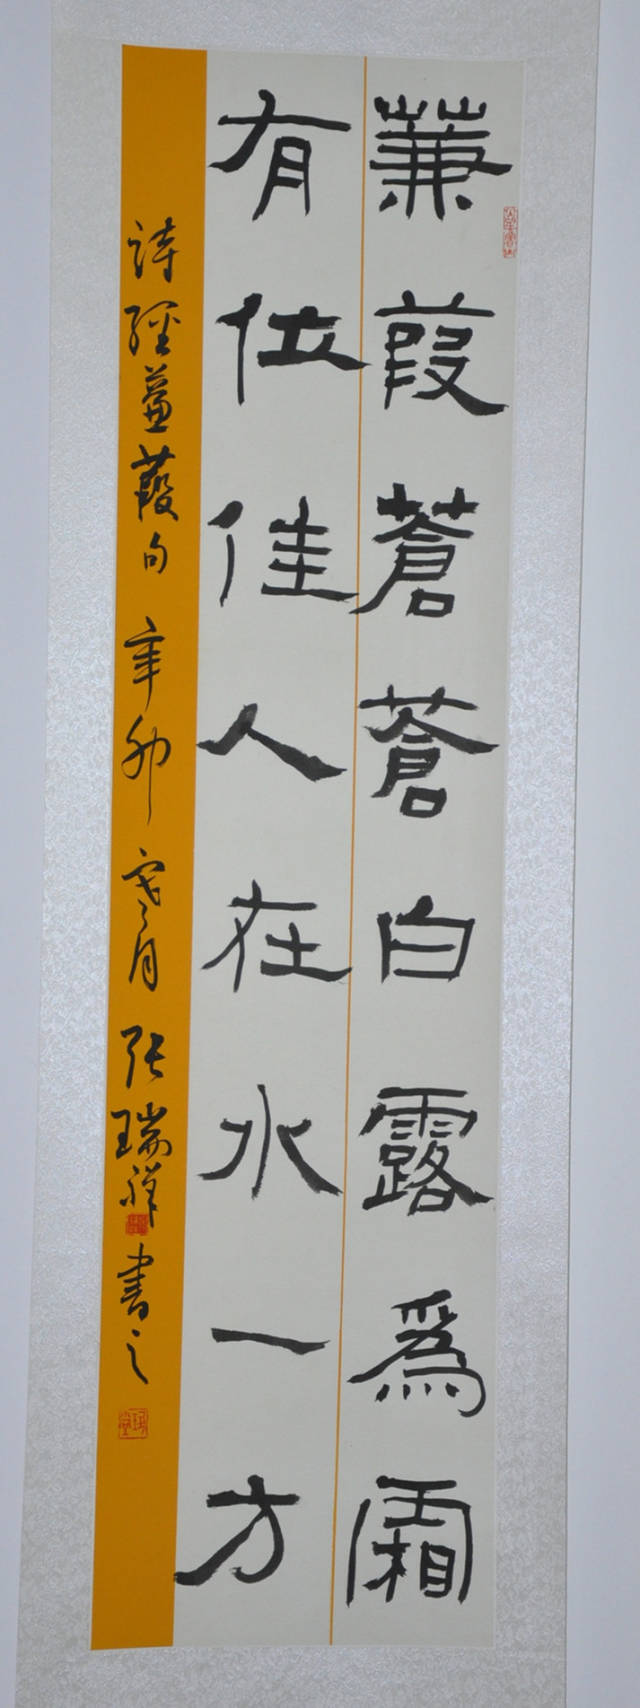 蒹葭蒼蒼白露爲霜
有位佳人在水一方
詩經蒹葭句 辛卯 寒月 张瑞祥書之